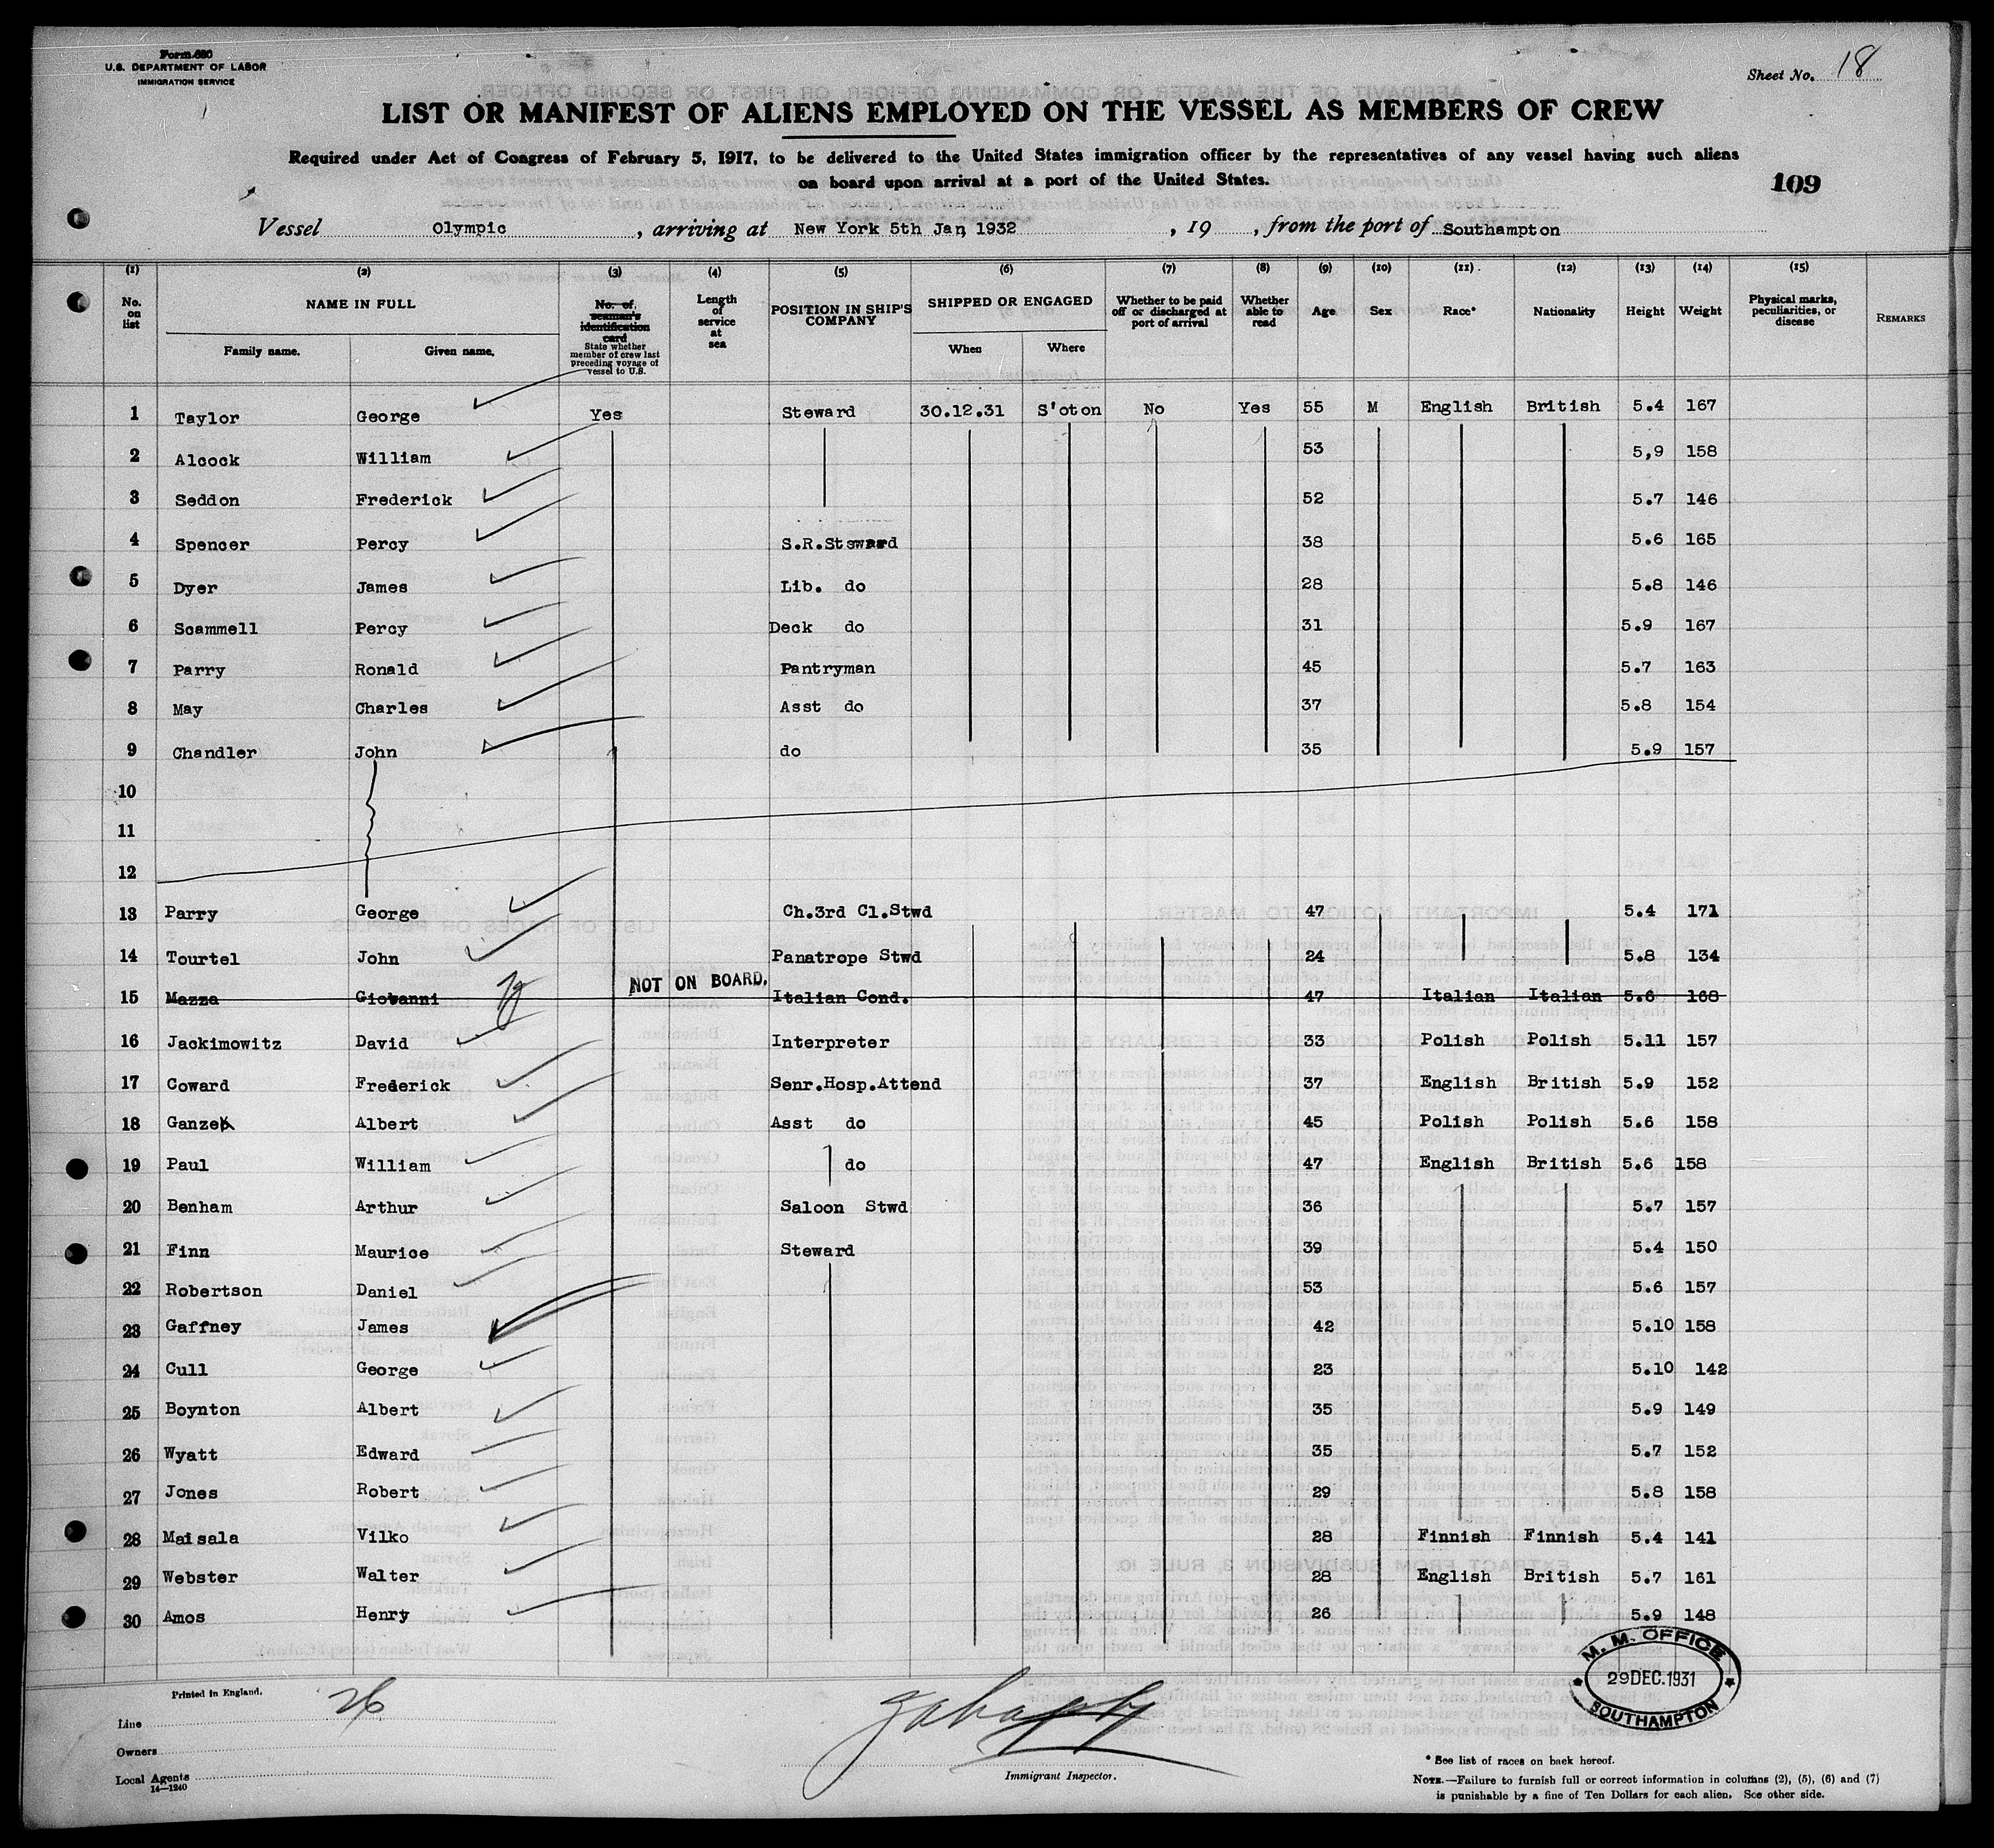 Form 680
U.S. DEPARTMENT OF LABOR
IMMIGRATION SERVICE
Sheet No. 18
LIST OR MANIFEST OF ALIENS EMPLOYED ON THE VESSEL AS MEMBERS OF CREW
Required under Act of Congress of February 5, 1917, to be delivered to the United States immigration officer by the representatives of any vessel having such aliens
on board upon arrival at a port of the United States.
109
Vessel Olympic, arriving at New York 5th Jan, 1932, 19 , from the port of Southampton
(1) (2) (3) (4) (5) (6) (7) (8) (9) (10) (11) (12) (13) (14) (15)
No. on list
NAME IN FULL
Family name. Given name.
No. of seaman's identification card
State whether member of crew last preceding voyage of vessel to U.S.
Length of service at sea
POSITION IN SHIP'S COMPANY
SHIPPED OR ENGAGED
When Where
Whether to be paid off or discharged at port of arrival
Whether able to read
Age Sex Race* Nationality Height Weight
Physical marks, peculiarities, or disease
REMARKS
1 Taylor George Yes Steward 30.12.31 S'oton No Yes 55 M English British 5.4 167
2 Alcock William 53 5,9 158
3 Seddon Frederick 52 5.7 146
4 Spencer Percy S.R.Steward 38 5.6 165
5 Dyer James Lib. do 28 5.8 146
6 Scammell Percy Deck do 31 5.9 167
7 Parry Ronald Pantryman 45 5.7 163
8 May Charles Asst do 37 5.8 154
9 Chandler John do 35 5.9 157
10
11
12
13 Parry George Ch.3rd Cl.Stwd 47 5.4 171
14 Tourtel John Panatrope Stwd 24 5.8 134
15 Mazza Giovanni NOT ON BOARD. Italian Cond. 47 Italian Italian 5.6 168
16 Jackimowitz David Interpreter 33 Polish Polish 5.11 157
17 Coward Frederick Senr.Hosp.Attend 37 English British 5.9 152
18 Ganzek Albert Asst do 45 Polish Polish 5.6 158
19 Paul William do 47 English British 5.6 158
20 Benham Arthur Saloon Stwd 36 5.7 157
21 Finn Maurice Steward 39 5.4 150
22 Robertson Daniel 53 5.6 157
23 Gaffney James 42 5.10 158
24 Cull George 23 5.10 142
25 Boynton Albert 35 5.9 149
26 Wyatt Edward 35 5.7 152
27 Jones Robert 29 5.8 158
28 Maisala Vilko 28 Finnish Finnish 5.4 141
29 Webster Walter 28 English British 5.7 161
30 Amos Henry 26 5.9 148
M. M. OFFICE
29 DEC. 1931
SOUTHAMPTON
Printed in England.
26
Line
Owners
Local Agents
14—1240
Immigrant Inspector.
* See list of races on back hereof.
NOTE.—Failure to furnish full or correct information in columns (2), (5), (6) and (7)
is punishable by a fine of Ten Dollars for each alien. See other side.